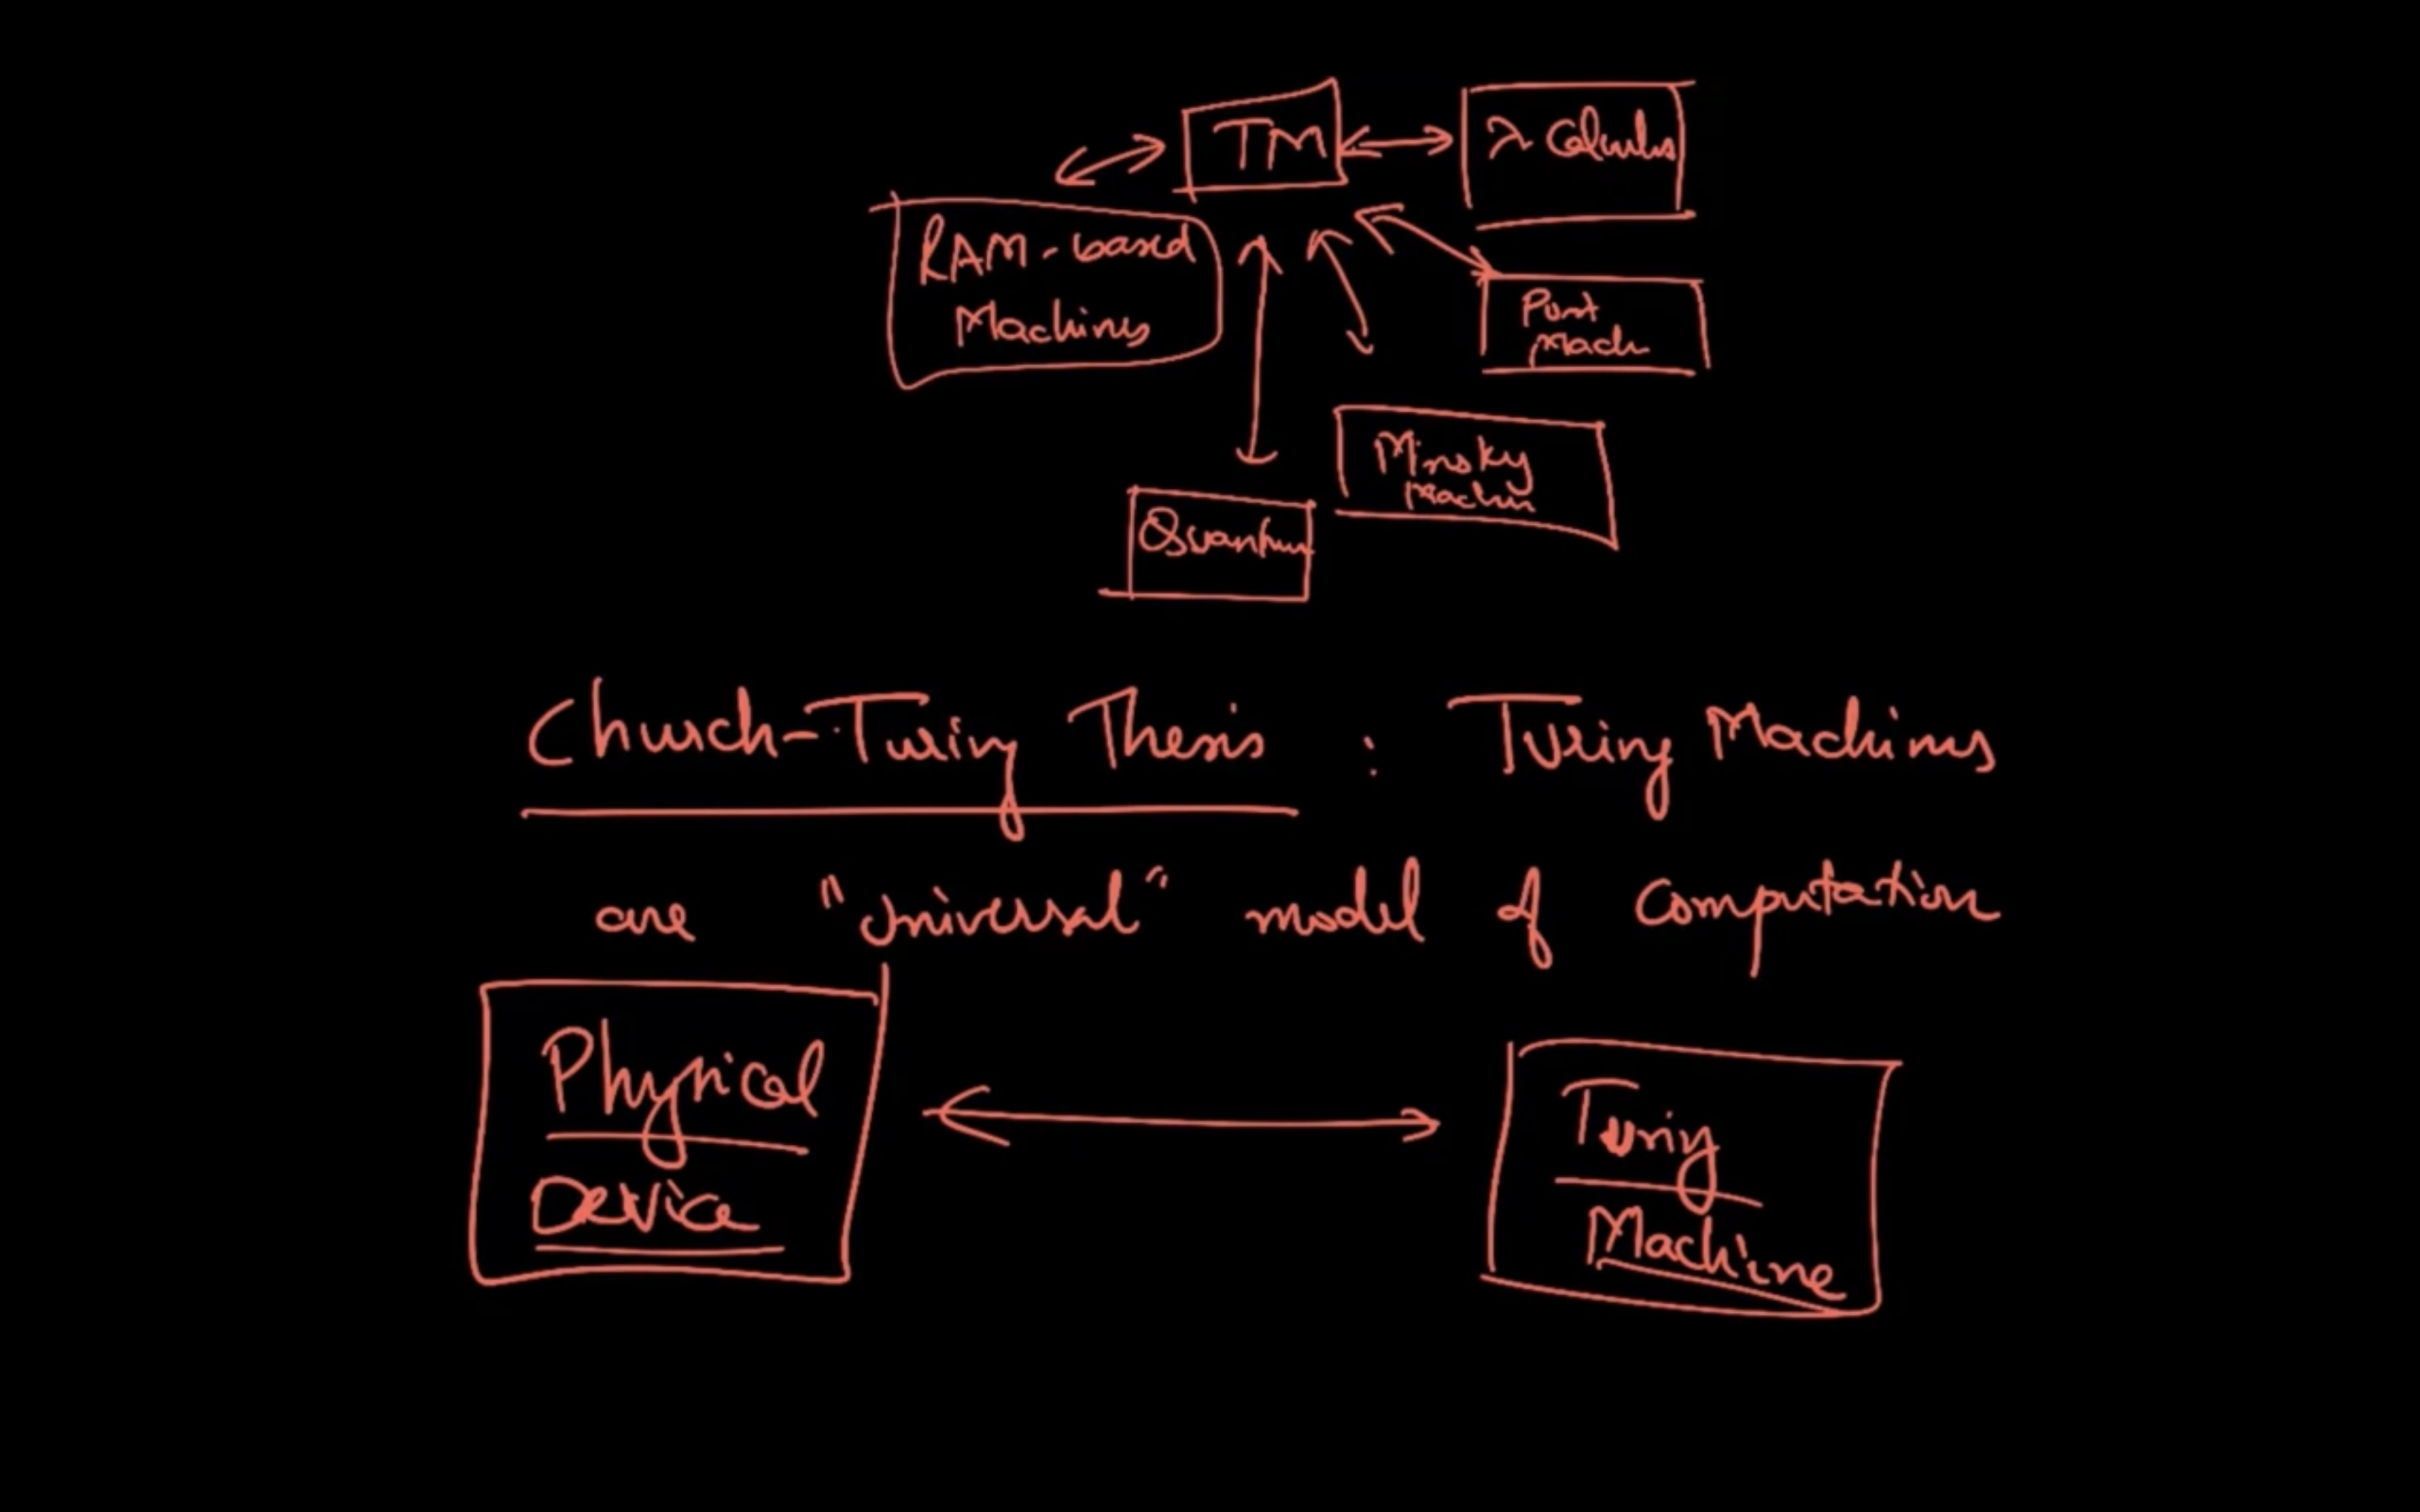 TM
λ Calculus
RAM-based
Machines
Post
Mach
Minsky
Machin
Quantum
Church-Turing Thesis : Turing Machines
are "universal" model of computation
Physical
Device
Turing
Machine